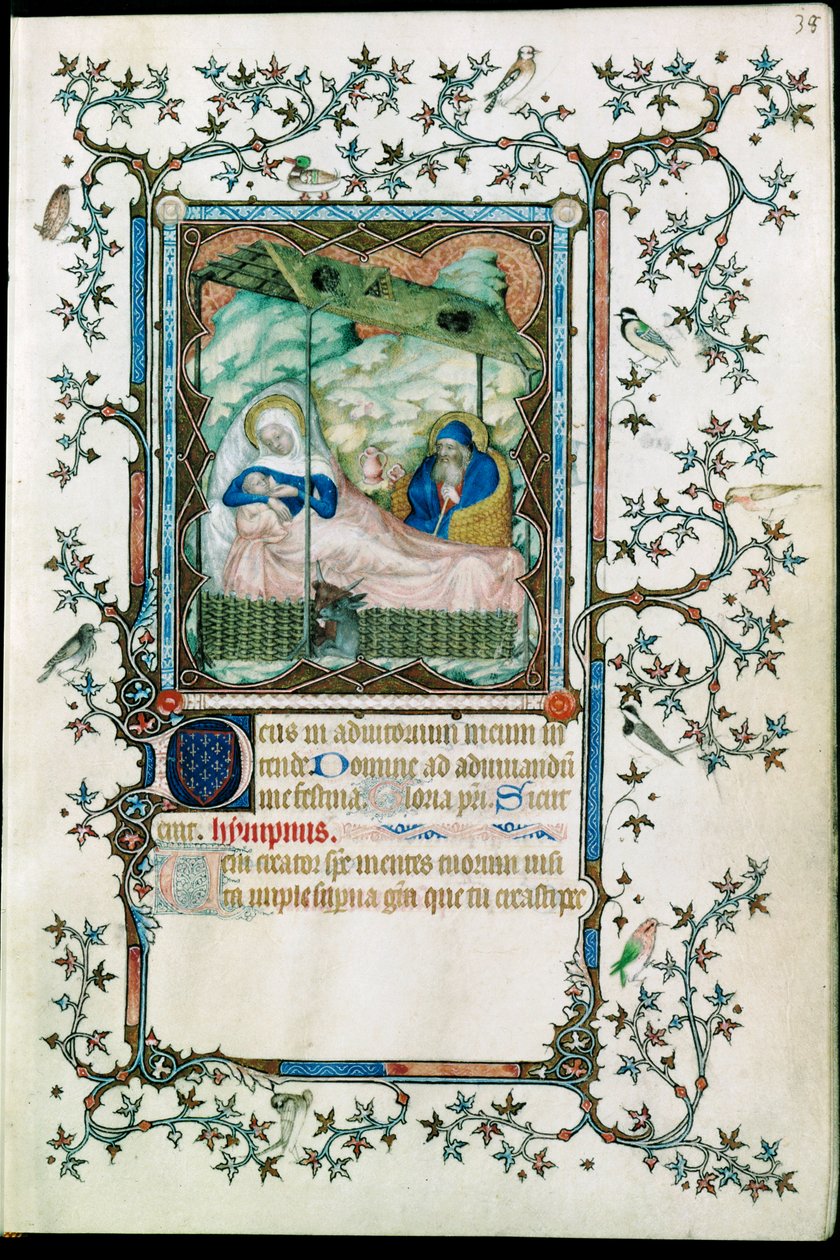 38
Deus in adiutorium meum in
tende. Domine ad adiuuandū
me festina. Gloria pr̄i. Sicut
erat. hympnus.
Veni creator sp̄c mentes tuorum uisi
ta imple sup̄na gr̄a que tu creasti pec